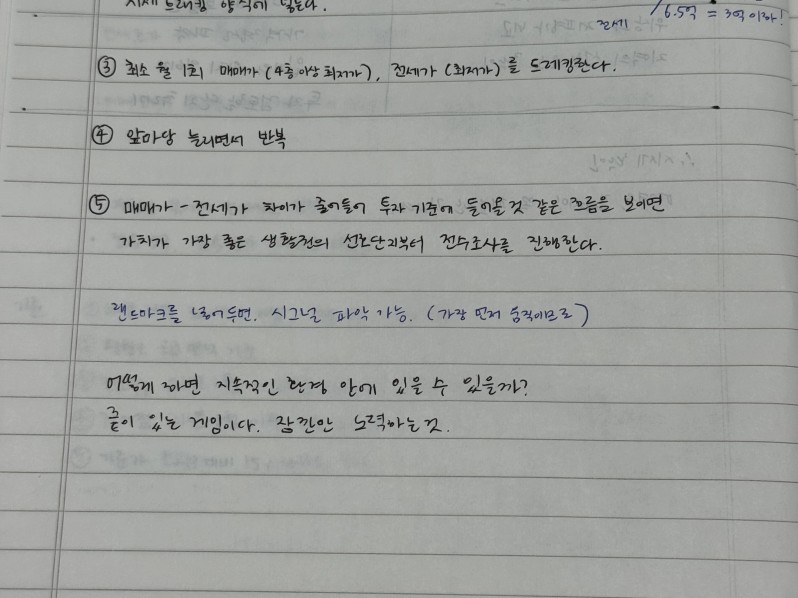 시세 트래킹 양식에 넣는다.
전세 / 6.5억 = 3억 이하!
③ 최소 월 1회 매매가 (4층 이상 최저가), 전세가 (최저가)를 트레킹한다.
④ 앞마당 늘리면서 반복
⑤ 매매가 - 전세가 차이가 줄어들어 투자 기준에 들어올 것 같은 흐름을 보이면
가치가 가장 좋은 생활권의 선호단지부터 전수조사를 진행한다.
랜드마크를 넣어두면. 시그널 파악 가능. (가장 먼저 움직이므로)
어떻게 하면 지속적인 환경 안에 있을 수 있을까?
끝이 있는 게임이다. 잠깐만 노력하는 것.